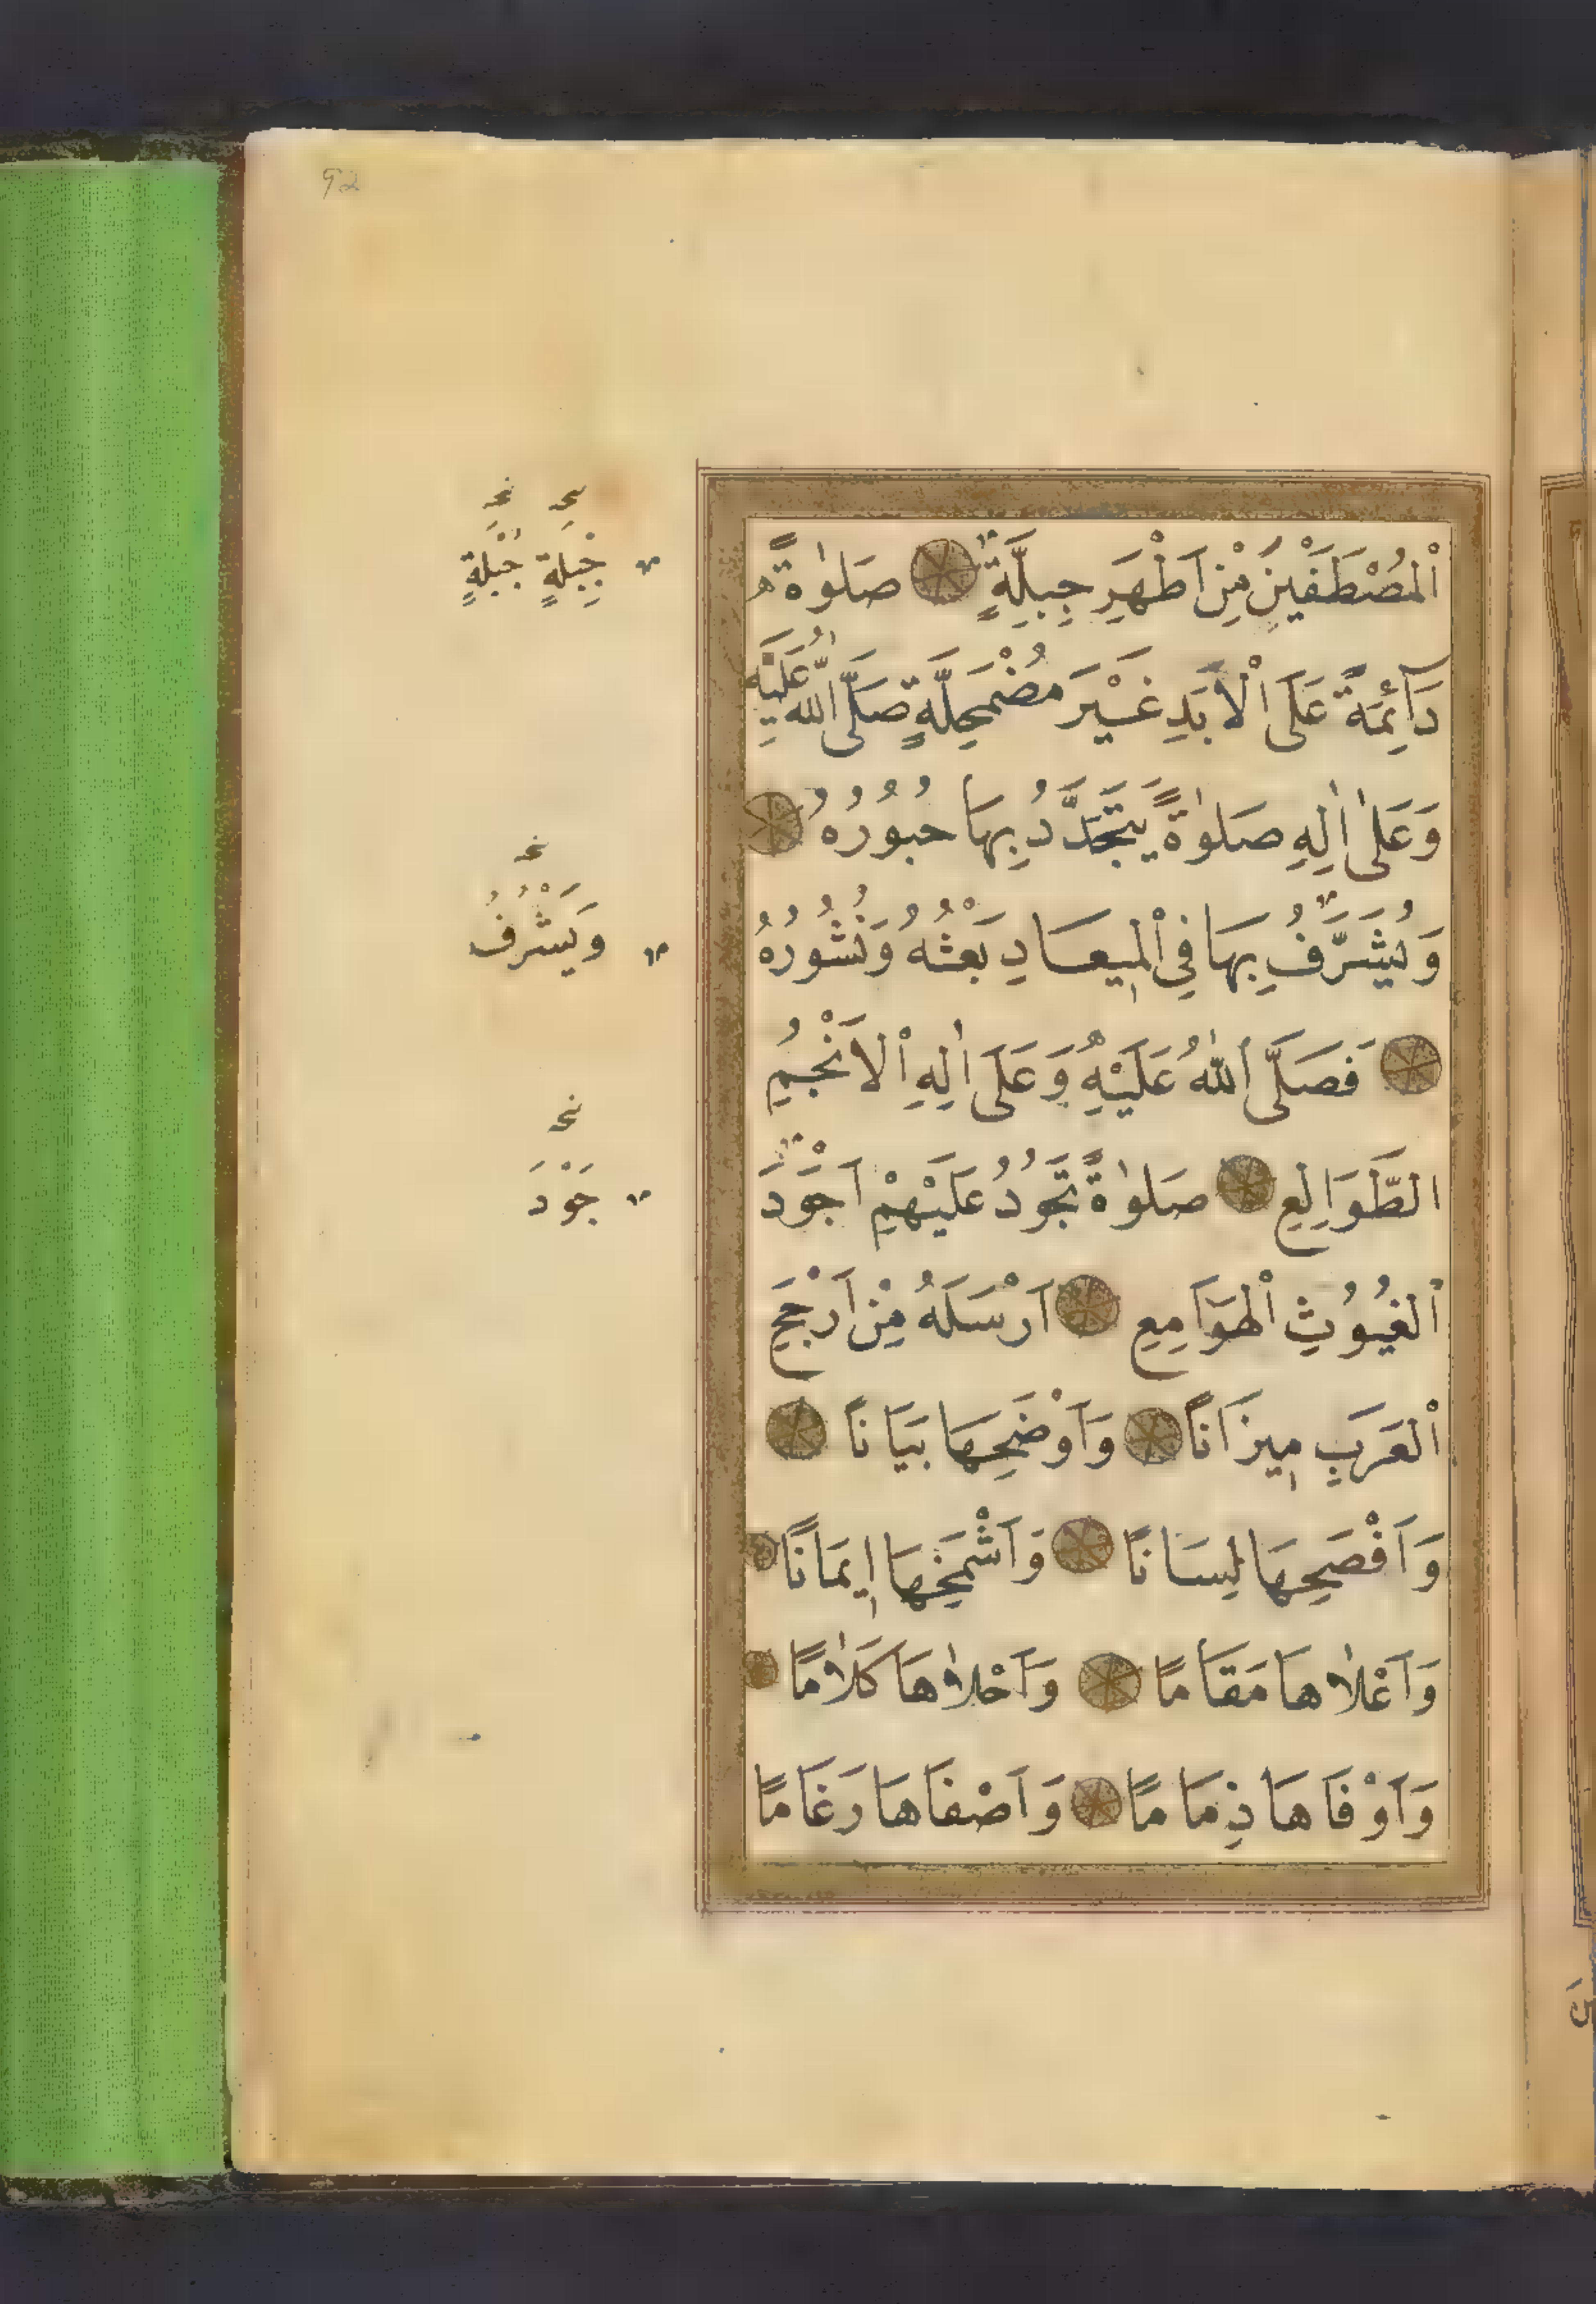 92
اَلْمُصْطَفَيْنَ مِنْ اَطْهَرِ جِبِلَّةٍ صَلٰوةً
دَآئِمَةً عَلَى الْاَبَدِ غَيْرَ مُضْمَحِلَّةٍ صَلَّى اللّٰهُ عَلَيْهِ
وَعَلٰى اٰلِهِ صَلٰوةً يَتَجَدَّدُ بِهَا حُبُورُهُ
وَيُشَرَّفُ بِهَا فِي الْمِيعَادِ بَعْثُهُ وَنُشُورُهُ
فَصَلَّى اللّٰهُ عَلَيْهِ وَعَلَى اٰلِهِ الْاَنْجُمِ
الطَّوَالِعِ صَلٰوةً تَجُودُ عَلَيْهِمْ اَجْوَدَ
الْغُيُوثِ الْهَوَامِعِ اَرْسَلَهُ مِنْ اَرْجَحِ
الْعَرَبِ مِيزَانًا وَاَوْضَحِهَا بَيَانًا
وَاَفْصَحِهَا لِسَانًا وَاَشْمَخِهَا اِيمَانًا
وَاَعْلَاهَا مَقَامًا وَاَحْلَاهَا كَلَامًا
وَاَوْفَاهَا ذِمَامًا وَاَصْفَاهَا رَغَامًا
جِبْلَةٍ جُبْلَةٍ
وَيَشْرُفُ
جَوْدَ